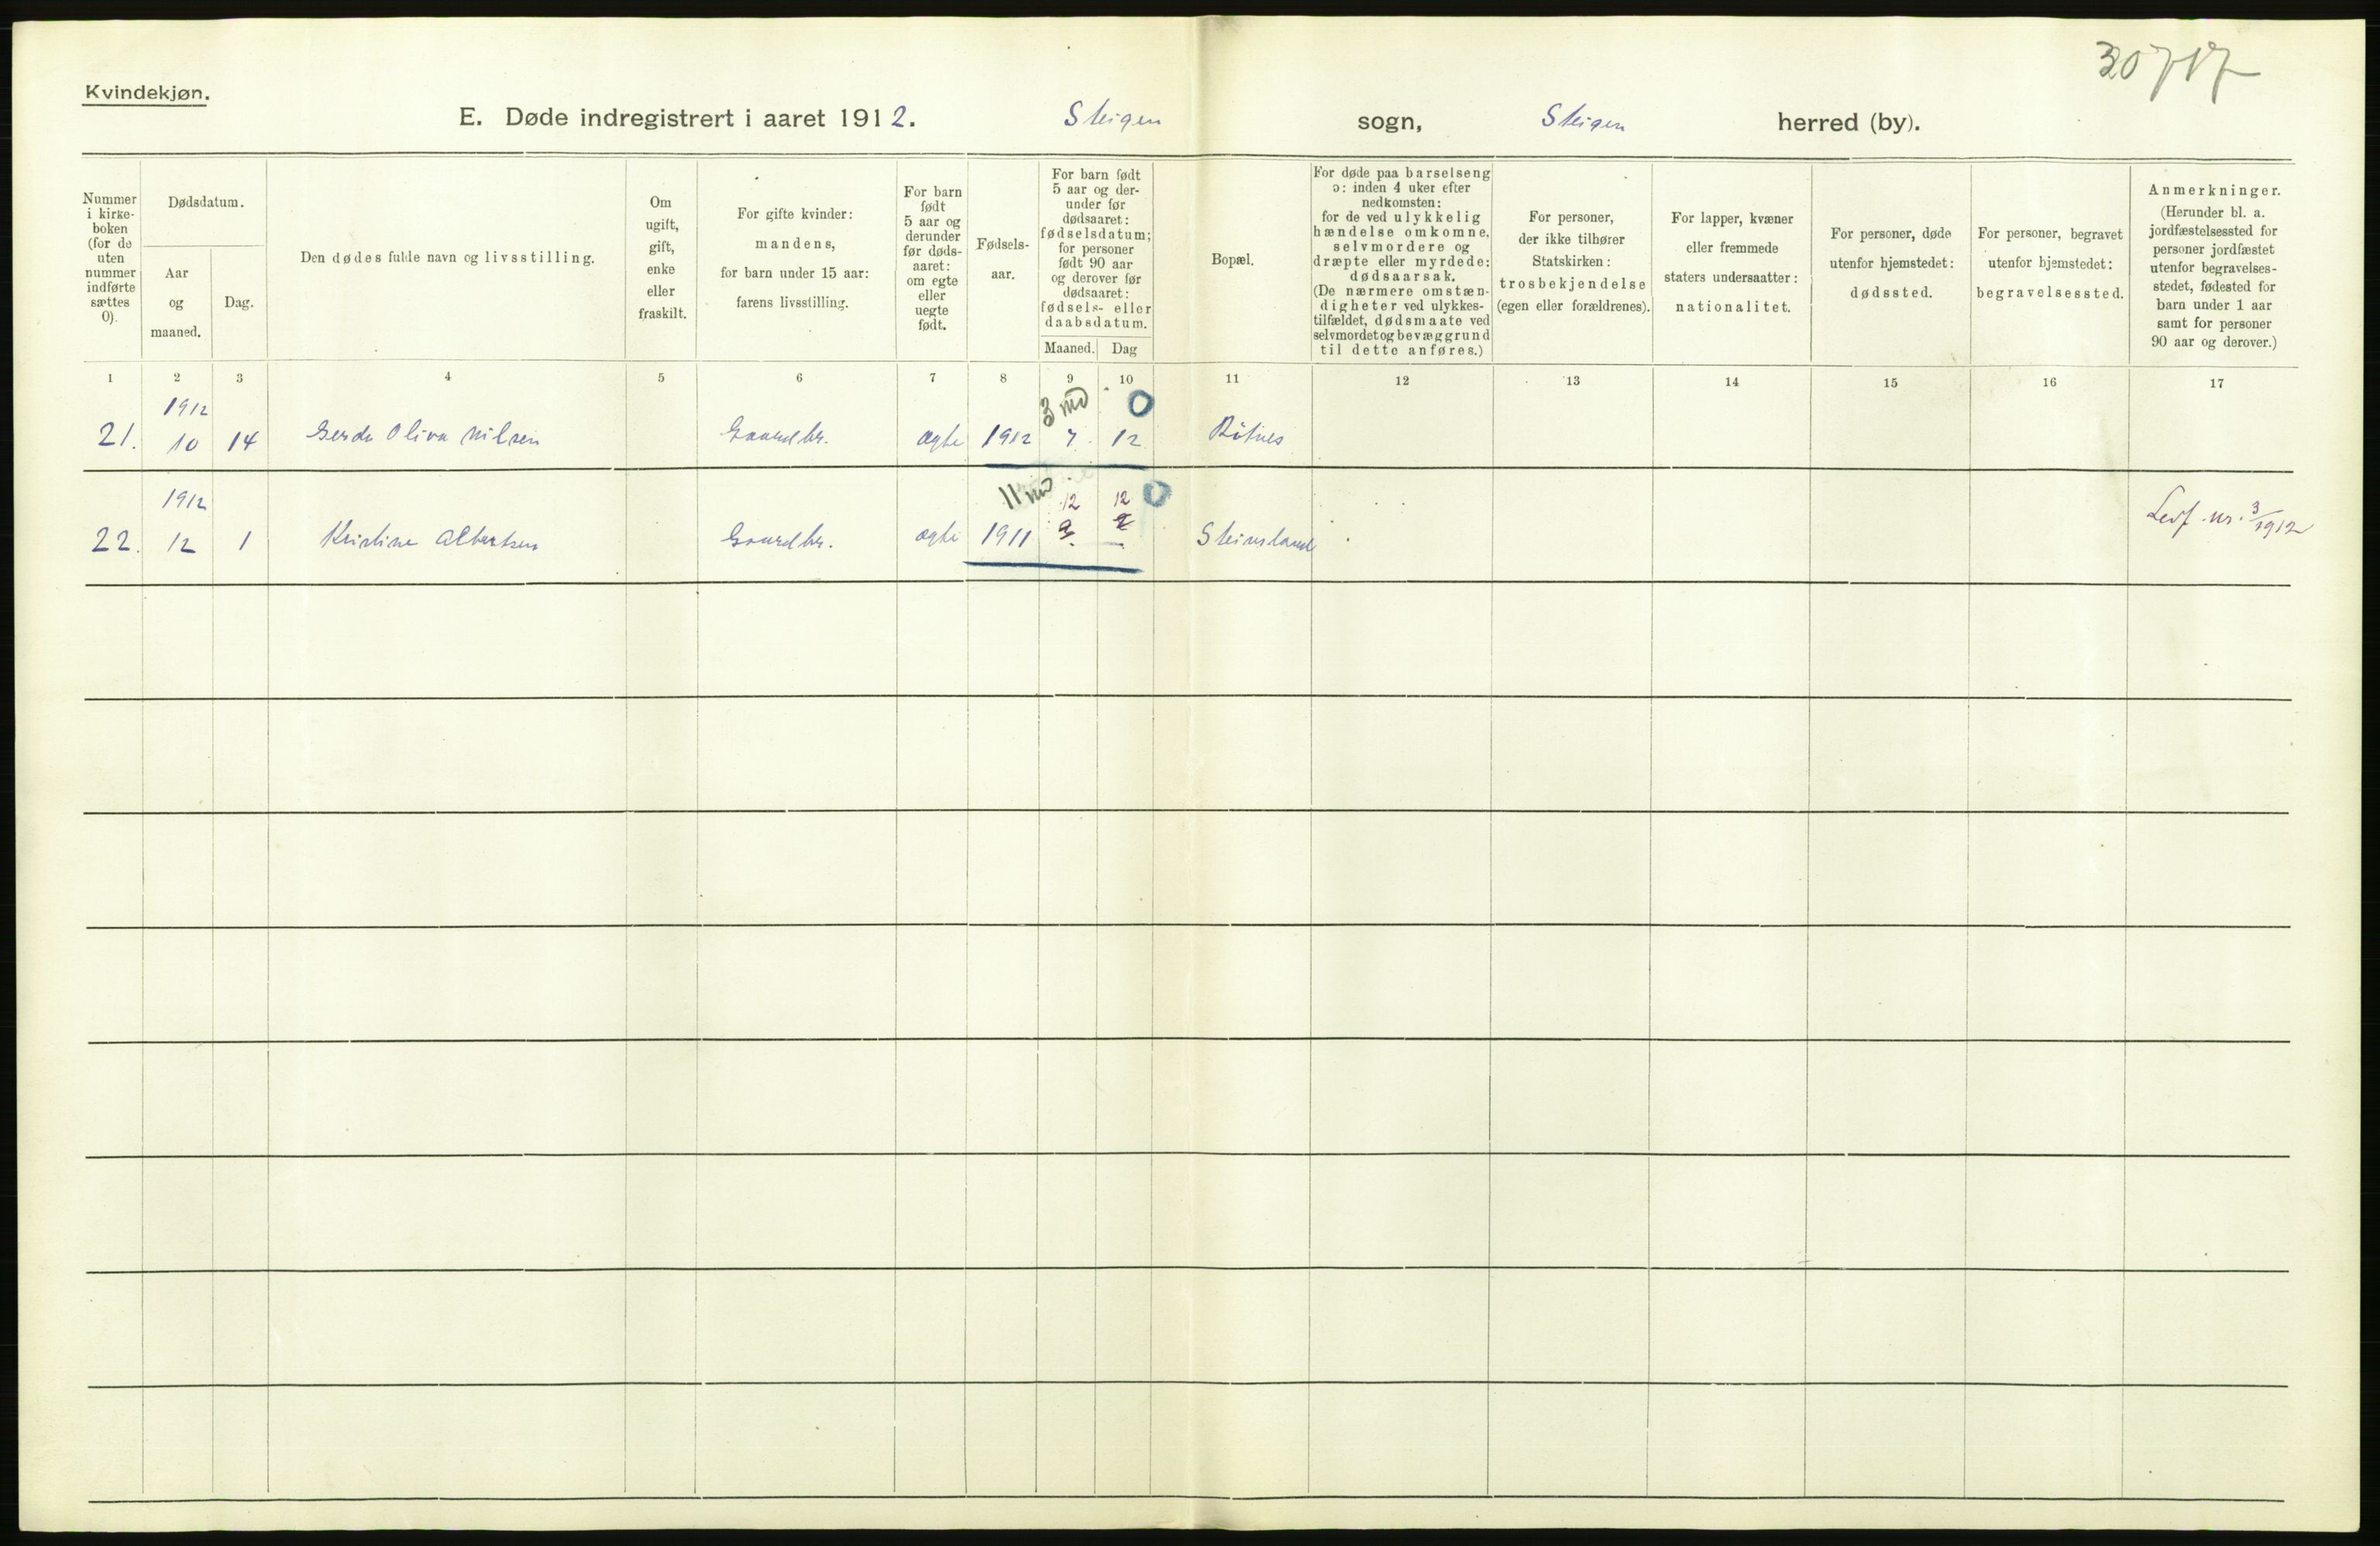 30717
Kvindekjøn.
E. Døde indregistrert i aaret 1912. Steigen sogn, Steigen herred (by).
Nummer
i kirke-
boken
(for de
uten
nummer
indførte
sættes
0).
Dødsdatum.
Aar
og
maaned.
Dag.
Den dødes fulde navn og livsstilling.
Om
ugift,
gift,
enke
eller
fraskilt.
For gifte kvinder:
mandens,
for barn under 15 aar:
farens livsstilling.
For barn
født
5 aar og
derunder
før døds-
aaret:
om egte
eller
uegte
født.
Fødsels-
aar.
For barn født
5 aar og der-
under før
dødsaaret:
fødselsdatum;
for personer
født 90 aar
og derover før
dødsaaret:
fødsels- eller
daabsdatum.
Maaned. Dag
Bopæl.
For døde paa barselseng
ɔ: inden 4 uker efter
nedkomsten:
for de ved ulykkelig
hændelse omkomne,
selvmordere og
dræpte eller myrdede:
dødsaarsak.
(De nærmere omstæn-
digheter ved ulykkes-
tilfældet, dødsmaate ved
selvmordet og bevæggrund
til dette anføres.)
For personer,
der ikke tilhører
Statskirken:
trosbekjendelse
(egen eller forældrenes).
For lapper, kvæner
eller fremmede
staters undersaatter:
nationalitet.
For personer, døde
utenfor hjemstedet:
dødssted.
For personer, begravet
utenfor hjemstedet:
begravelsessted.
Anmerkninger.
(Herunder bl. a.
jordfæstelsessted for
personer jordfæstet
utenfor begravelses-
stedet, fødested for
barn under 1 aar
samt for personer
90 aar og derover.)
1 2 3 4 5 6 7 8 9 10 11 12 13 14 15 16 17
1912 3 md 0
21. 10 14 Gerda Oliva Nilsen Gaardbr. ægte 1912 7. 12
1912 11 md 12 12 0
22. 12 1 Kristine Albertsen Gaardbr. ægte 1911 Steinsland nr. 3/1912